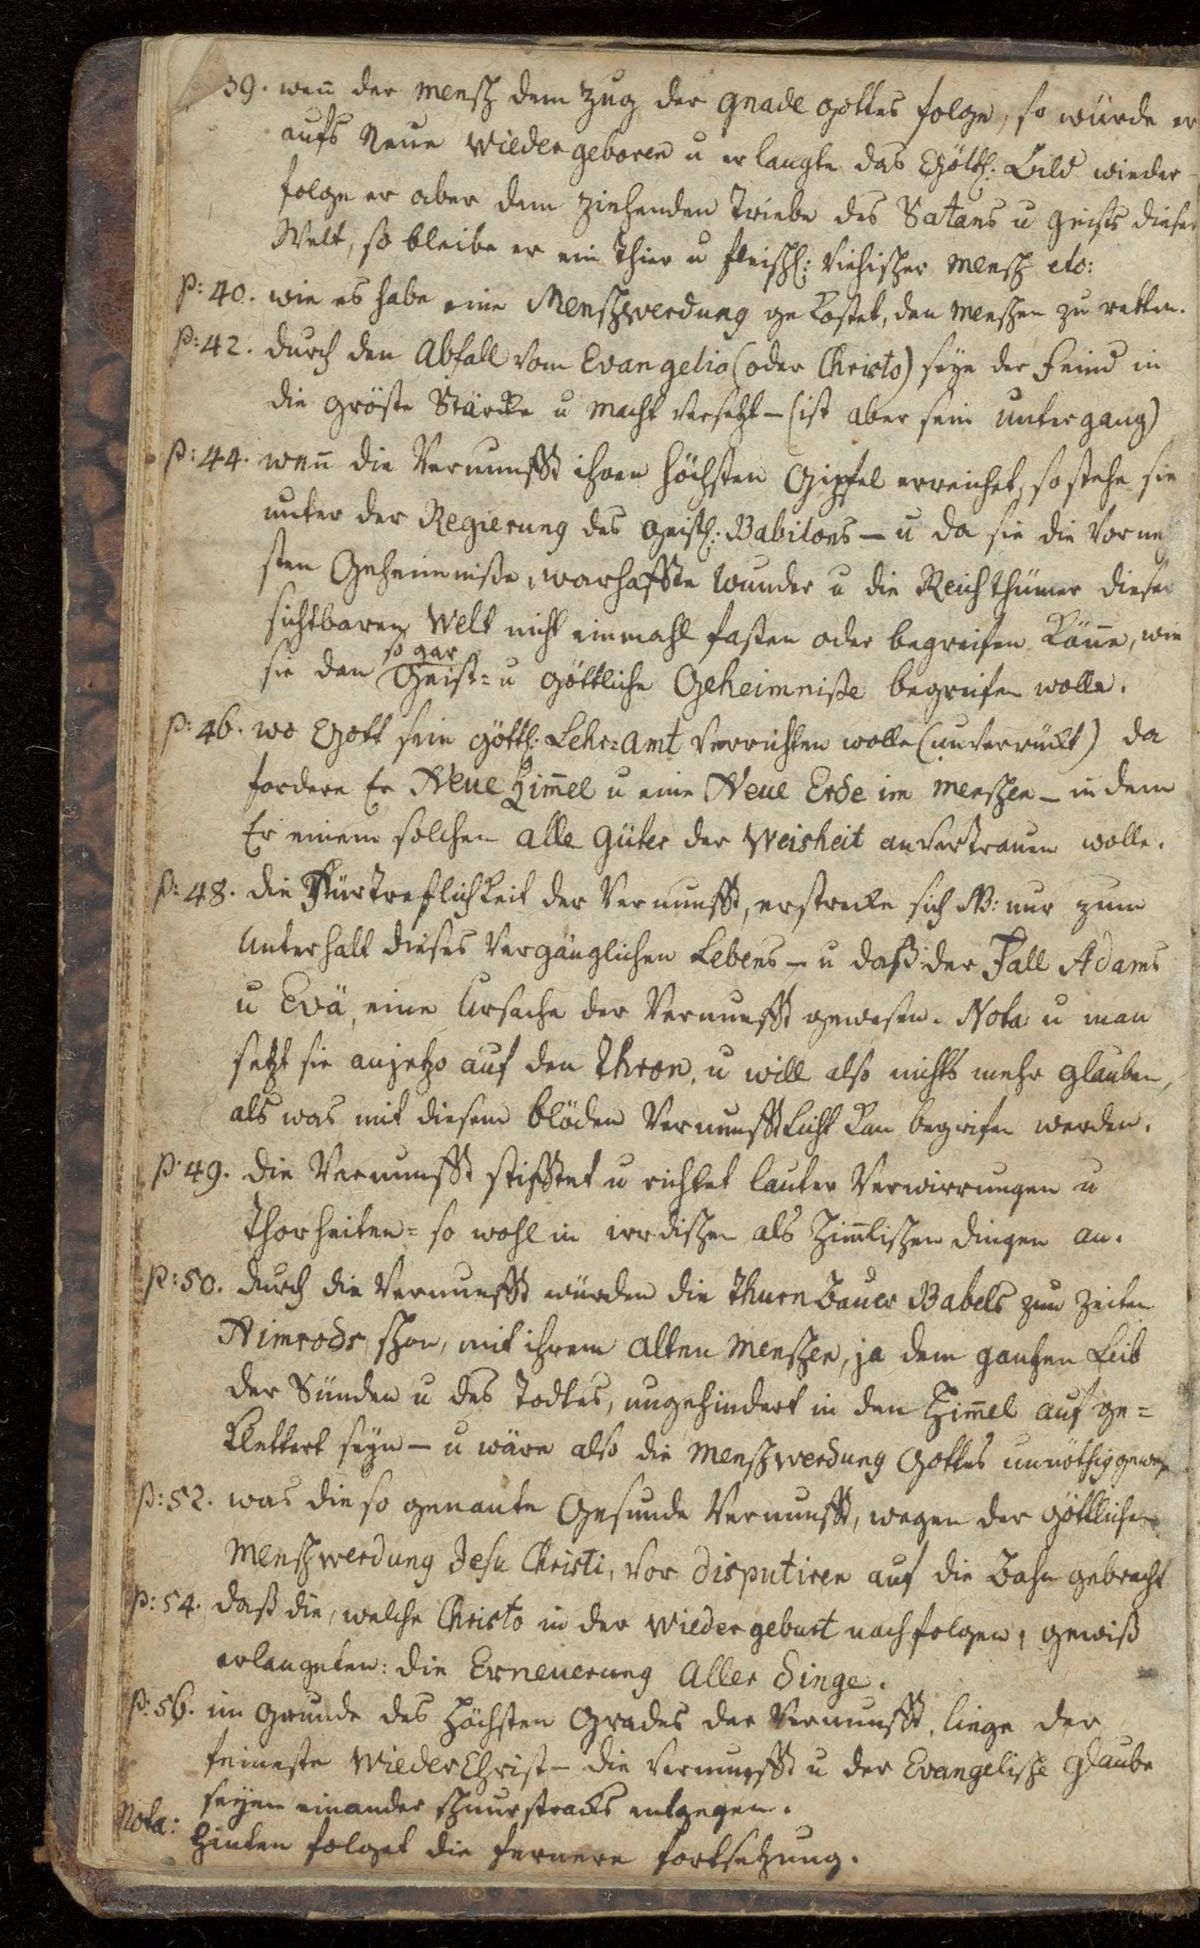 39. wen̄ der Mensch dem Zug der Gnade Gottes folge, so würde er
aufs Neue Wiedergeboren u erlangte das Göttl: Bild wieder
folge er aber dem ziehenden Triebe des Satans u Geists dieser
Welt, so bleibe er ein Thier u fleischl: Viehischer Mensch etc:
p: 40. wie es habe eine Menschwerdung gekostet, den Menschen zu retten.
p: 42. durch den Abfall vom Evangelio (oder Christo) seye der Feind in
die gröste Stärcke u Macht versetzt – (ist aber sein Untergang)
p: 44. wen̄ die Vernunfft ihren höchsten Gipfel erreichet, so stehe sie
unter der Regierung des Geistl: Babilons – u da sie die Vorneh
sten Geheimniße, warhaffte Wunder u die Reichthümer dieser
sichtbaren Welt nicht einmahl fasten oder begreifen Kön̄e, wie
so gar
sie dan Geist= u göttliche Geheimniße begreifen wolle.
p: 46. wo Gott sein göttl: Lehr=Amt Verrichten wolle (unverruckt) da
fordere Er Neue Him̄el u eine Neue Erde im Menschen – in dem
Er einem solchen alle Güter der Weisheit anvertrauen wolle.
p: 48. die Fürtreflichkeit der Vernunfft, erstrecke sich NB: nur zum
Unterhalt dieses Vergänglichen Lebens – u daß der Fall Adams
u Evä, eine Ursache der Vernunfft gewesen. Nota: u man
setzt sie anjetzo auf den Thron, u will also nichts mehr glauben,
als was mit diesem blöden Vernunfftlicht Kan begrifen werden.
p: 49. die Vernunfft stifftet u richtet lauter Verwirrungen u
Thorheiten= so wohl in irrdischen als Him̄lischen dingen an.
p: 50. durch die Vernunfft würden die Thurn Bauer Babels zun Zeiten
Nimrods schon, mit ihrem alten Menschen, ja dem gantzen Leib
der Sünden u des Todtes, ungehindert in den Him̄el auf ge=
Klettert seyn – u wäre also die Menschwerdung Gottes unnöthig gewese
p: 52. was die so genante Gesunde Vernunfft, wegen der göttlichen
Menschwerdung Jesu Christi, vor disputiren auf die Bahn gebracht
p: 54. daß die, welche Christo in der Wiedergeburt nachfolgen, gewiß
erlangeten: die Erneuerung Aller Dinge.
p: 56. im Grunde des Höchsten Grades der Vernunfft, liege der
feineste WiederChrist – die Vernunfft u der Evangelische Glaube
seyen einander schnurstracks entgegen.
Nota: Hinten folget die fernere fortsetzung.